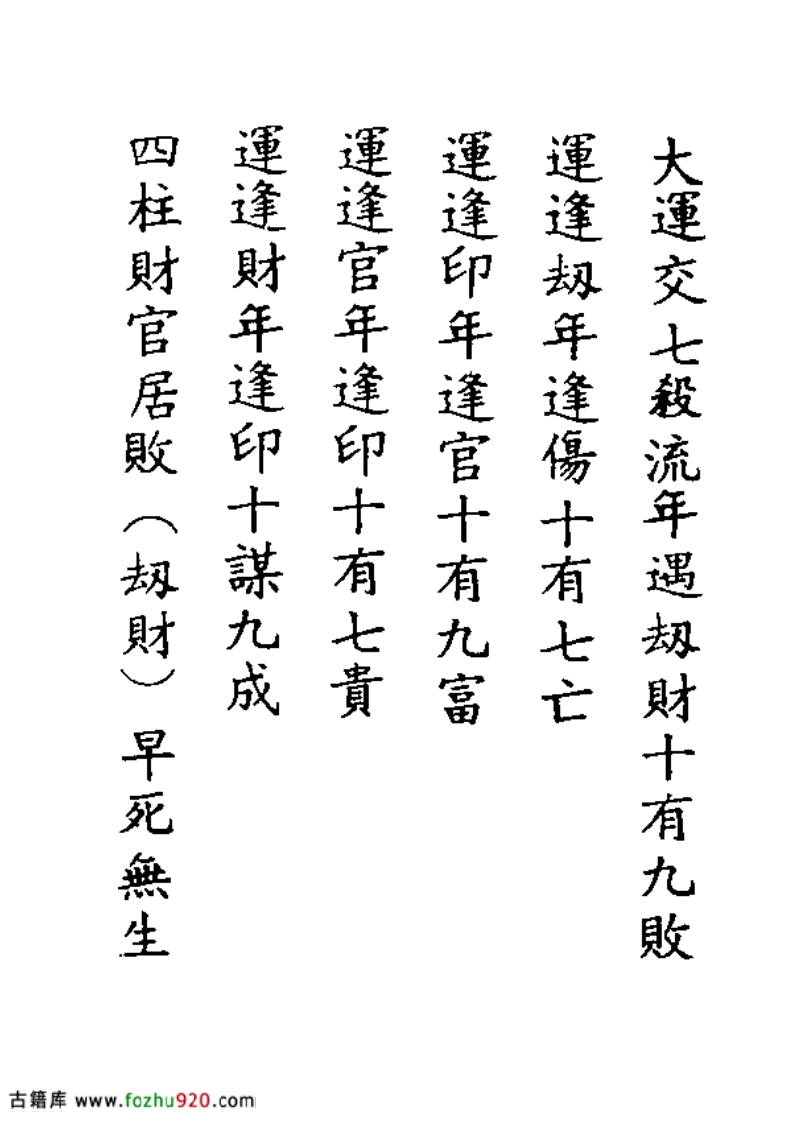 大運交七殺流年遇刼財十有九敗
運逢刼年逢傷十有七亡
運逢印年逢官十有九富
運逢官年逢印十有七貴
運逢財年逢印十謀九成
四柱財官居敗（刼財）早死無生
古籍库 www.fozhu920.com